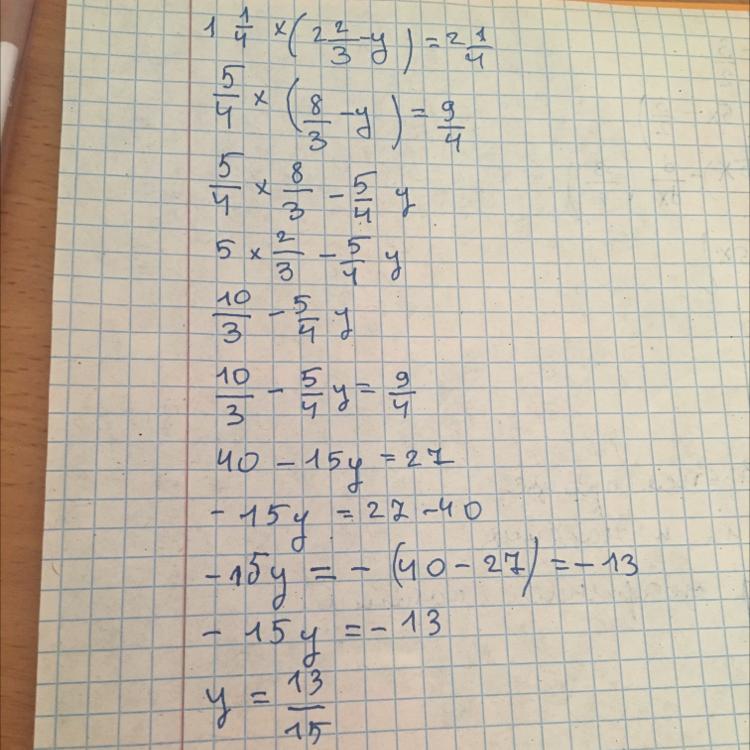 1 1/4 × (2 2/3 - y) = 2 1/4
5/4 × (8/3 - y) = 9/4
5/4 × 8/3 - 5/4 y
5 × 2/3 - 5/4 y
10/3 - 5/4 y
10/3 - 5/4 y = 9/4
40 - 15y = 27
- 15y = 27 - 40
- 15y = - (40 - 27) = - 13
- 15y = - 13
y = 13/15